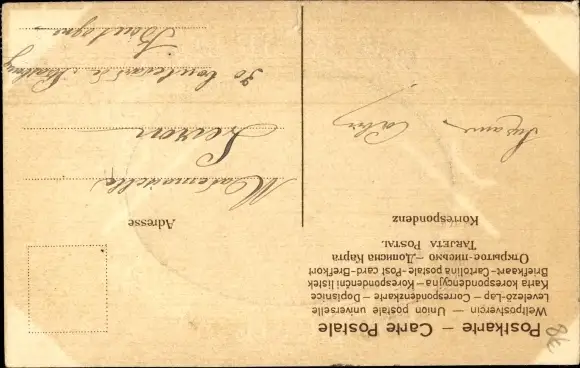 Postkarte — Carte Postale
Weltpostverein — Union postale universelle
Levelező-Lap — Correspondenzkarte — Dopisnice
Karta korespondencyjna — Korespondenční lístek
Briefkaart-Cartolina postale-Post card-Brefkort
Открытое письмо — Дописна Карта
TARJETA POSTAL
Korrespondenz
Adresse
Mademoiselle
30 boulevard de
Boulogne